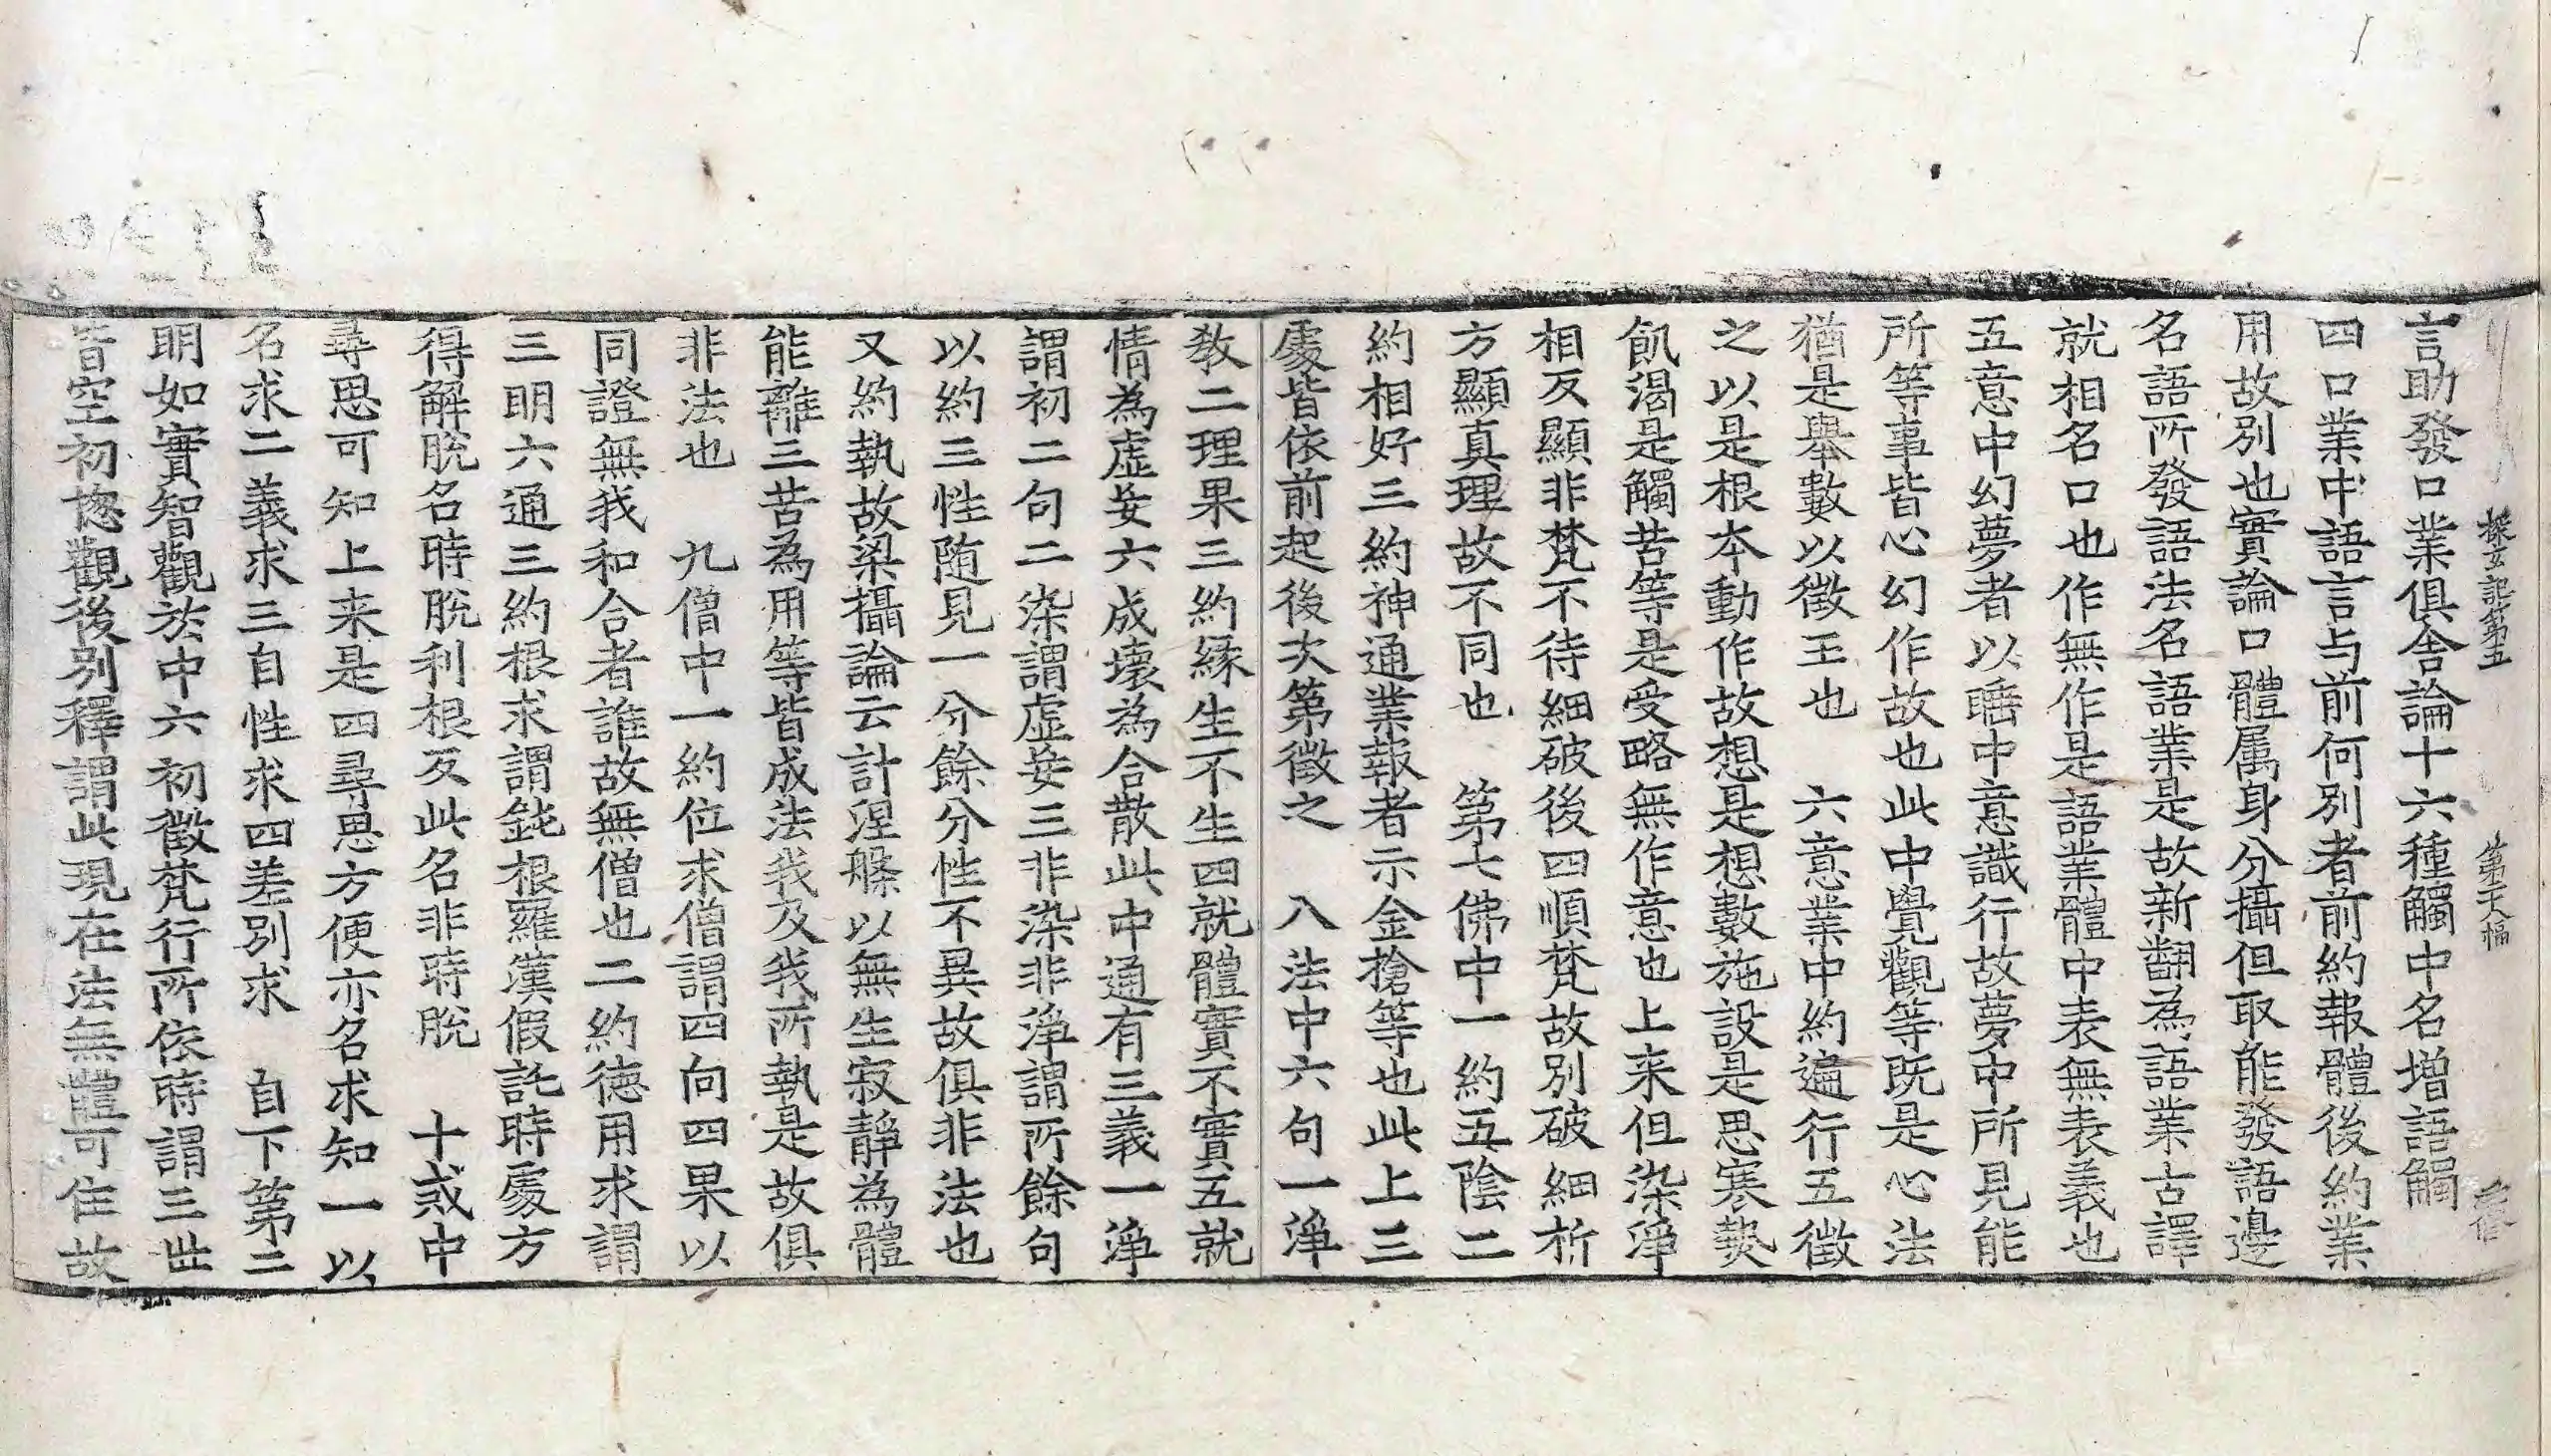 探玄記第五 第六 福
言助發口業俱舍論十六種觸中名增語觸
四口業中語言与前何別者前約報體後約業
用故別也實論口體属身分攝但取能發語邊
名語所發語法名語業是故新翻為語業古譯
就相名口也作無作是語業體中表無表義也
五意中幻夢者以睡中意識行故夢中所見能
所等事皆心幻作故也此中覺觀等既是心法
猶是舉數以徵王也 六意業中約遍行五徵
之以是根本動作故想是想數施設是思寒熱
飢渴是觸苦等是受略無作意也上来但染淨
相反顯非梵不待細破後四順梵故別破細析
方顯真理故不同也 第七佛中一約五陰二
約相好三約神通業報者示金搶等也此上三
處皆依前起後次第徵之 八法中六句一淨
教二理果三約緣生不生四就體實不實五就
情為虛妄六成壞為合散此中通有三義一淨
謂初二句二染謂虛妄三非染非淨謂所餘句
以約三性随見一分餘分性不異故俱非法也
又約執故梁攝論云計涅槃以無生寂靜為體
能離三苦為用等皆成法我及我所執是故俱
非法也 九僧中一約位求僧謂四向四果以
同證無我和合者誰故無僧也二約德用求謂
三明六通三約根求謂鈍根羅漢假託時處方
得解脫名時脫利根反此名非時脫 十戒中
尋思可知上来是四尋思方便亦名求知一以
名求二義求三自性求四差別求 自下第二
明如實智觀於中六初徵梵行所依時謂三世
皆空初揔觀後別釋謂此現在法無體可住故